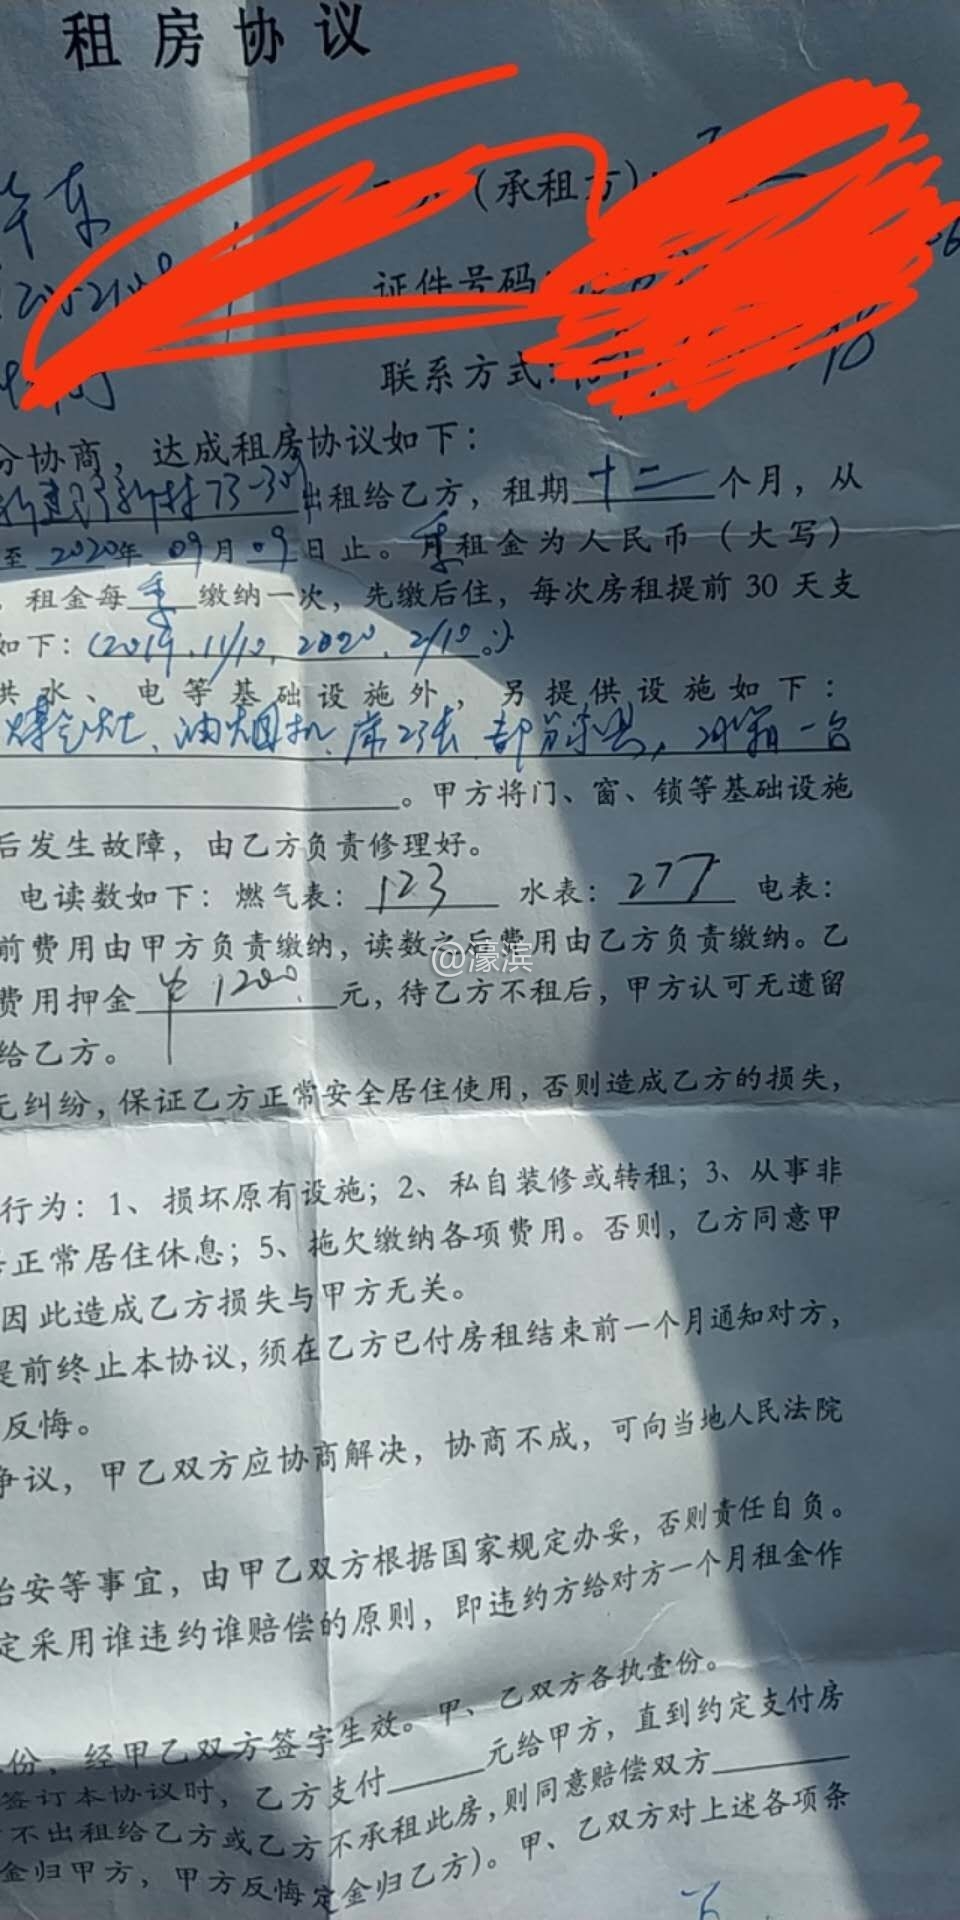 租房协议
（承租方）
证件号码：
联系方式：
分协商，达成租房协议如下：
新建新村73-301出租给乙方，租期十二个月，从
至2020年09月09日止。季租金为人民币（大写）
租金每季缴纳一次，先缴后住，每次房租提前30天支
如下：(2019、11/10，2020、2/10。)
供水、电等基础设施外，另提供设施如下：
煤气灶、油烟机、床3张、部分家具，冰箱一台
。甲方将门、窗、锁等基础设施
后发生故障，由乙方负责修理好。
电读数如下：燃气表：123 水表：277 电表：
前费用由甲方负责缴纳，读数之后费用由乙方负责缴纳。乙
@濠滨
费用押金￥1200元，待乙方不租后，甲方认可无遗留
给乙方。
无纠纷，保证乙方正常安全居住使用，否则造成乙方的损失，
行为：1、损坏原有设施；2、私自装修或转租；3、从事非
正常居住休息；5、拖欠缴纳各项费用。否则，乙方同意甲
因此造成乙方损失与甲方无关。
提前终止本协议，须在乙方已付房租结束前一个月通知对方，
反悔。
争议，甲乙双方应协商解决，协商不成，可向当地人民法院
治安等事宜，由甲乙双方根据国家规定办妥，否则责任自负。
定采用谁违约谁赔偿的原则，即违约方给对方一个月租金作
份，经甲乙双方签字生效。甲、乙双方各执壹份。
签订本协议时，乙方支付 元给甲方，直到约定支付房
不出租给乙方或乙方不承租此房，则同意赔偿双方
金归甲方，甲方反悔定金归乙方）。甲、乙双方对上述各项条